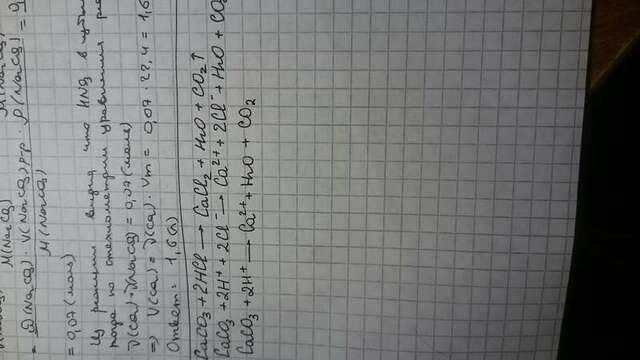 M(Na₂CO₃) M(Na₂CO₃)
= ω(Na₂CO₃) · V(Na₂CO₃)р-р · ρ(Na₂CO₃) =
M(Na₂CO₃)
= 0,07 (моль)
Из решения видно, что HNO₃ в
тогда по стехиометрии уравнения
ν(CO₂) = ν(Na₂CO₃) = 0,07 (моль)
=> V(CO₂) = ν(CO₂) · Vm = 0,07 · 22,4 = 1,6
Ответ: 1,6 (л)
CaCO₃ + 2HCl → CaCl₂ + H₂O + CO₂↑
CaCO₃ + 2H⁺ + 2Cl⁻ → Ca²⁺ + 2Cl⁻ + H₂O + CO₂
CaCO₃ + 2H⁺ → Ca²⁺ + H₂O + CO₂